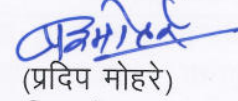 (प्रदिप मोहरे)